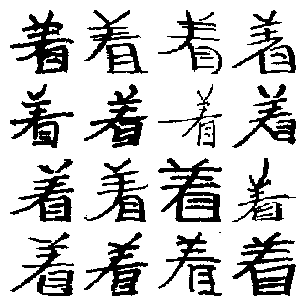 着着着着
着着着着
着着着着
着着着着